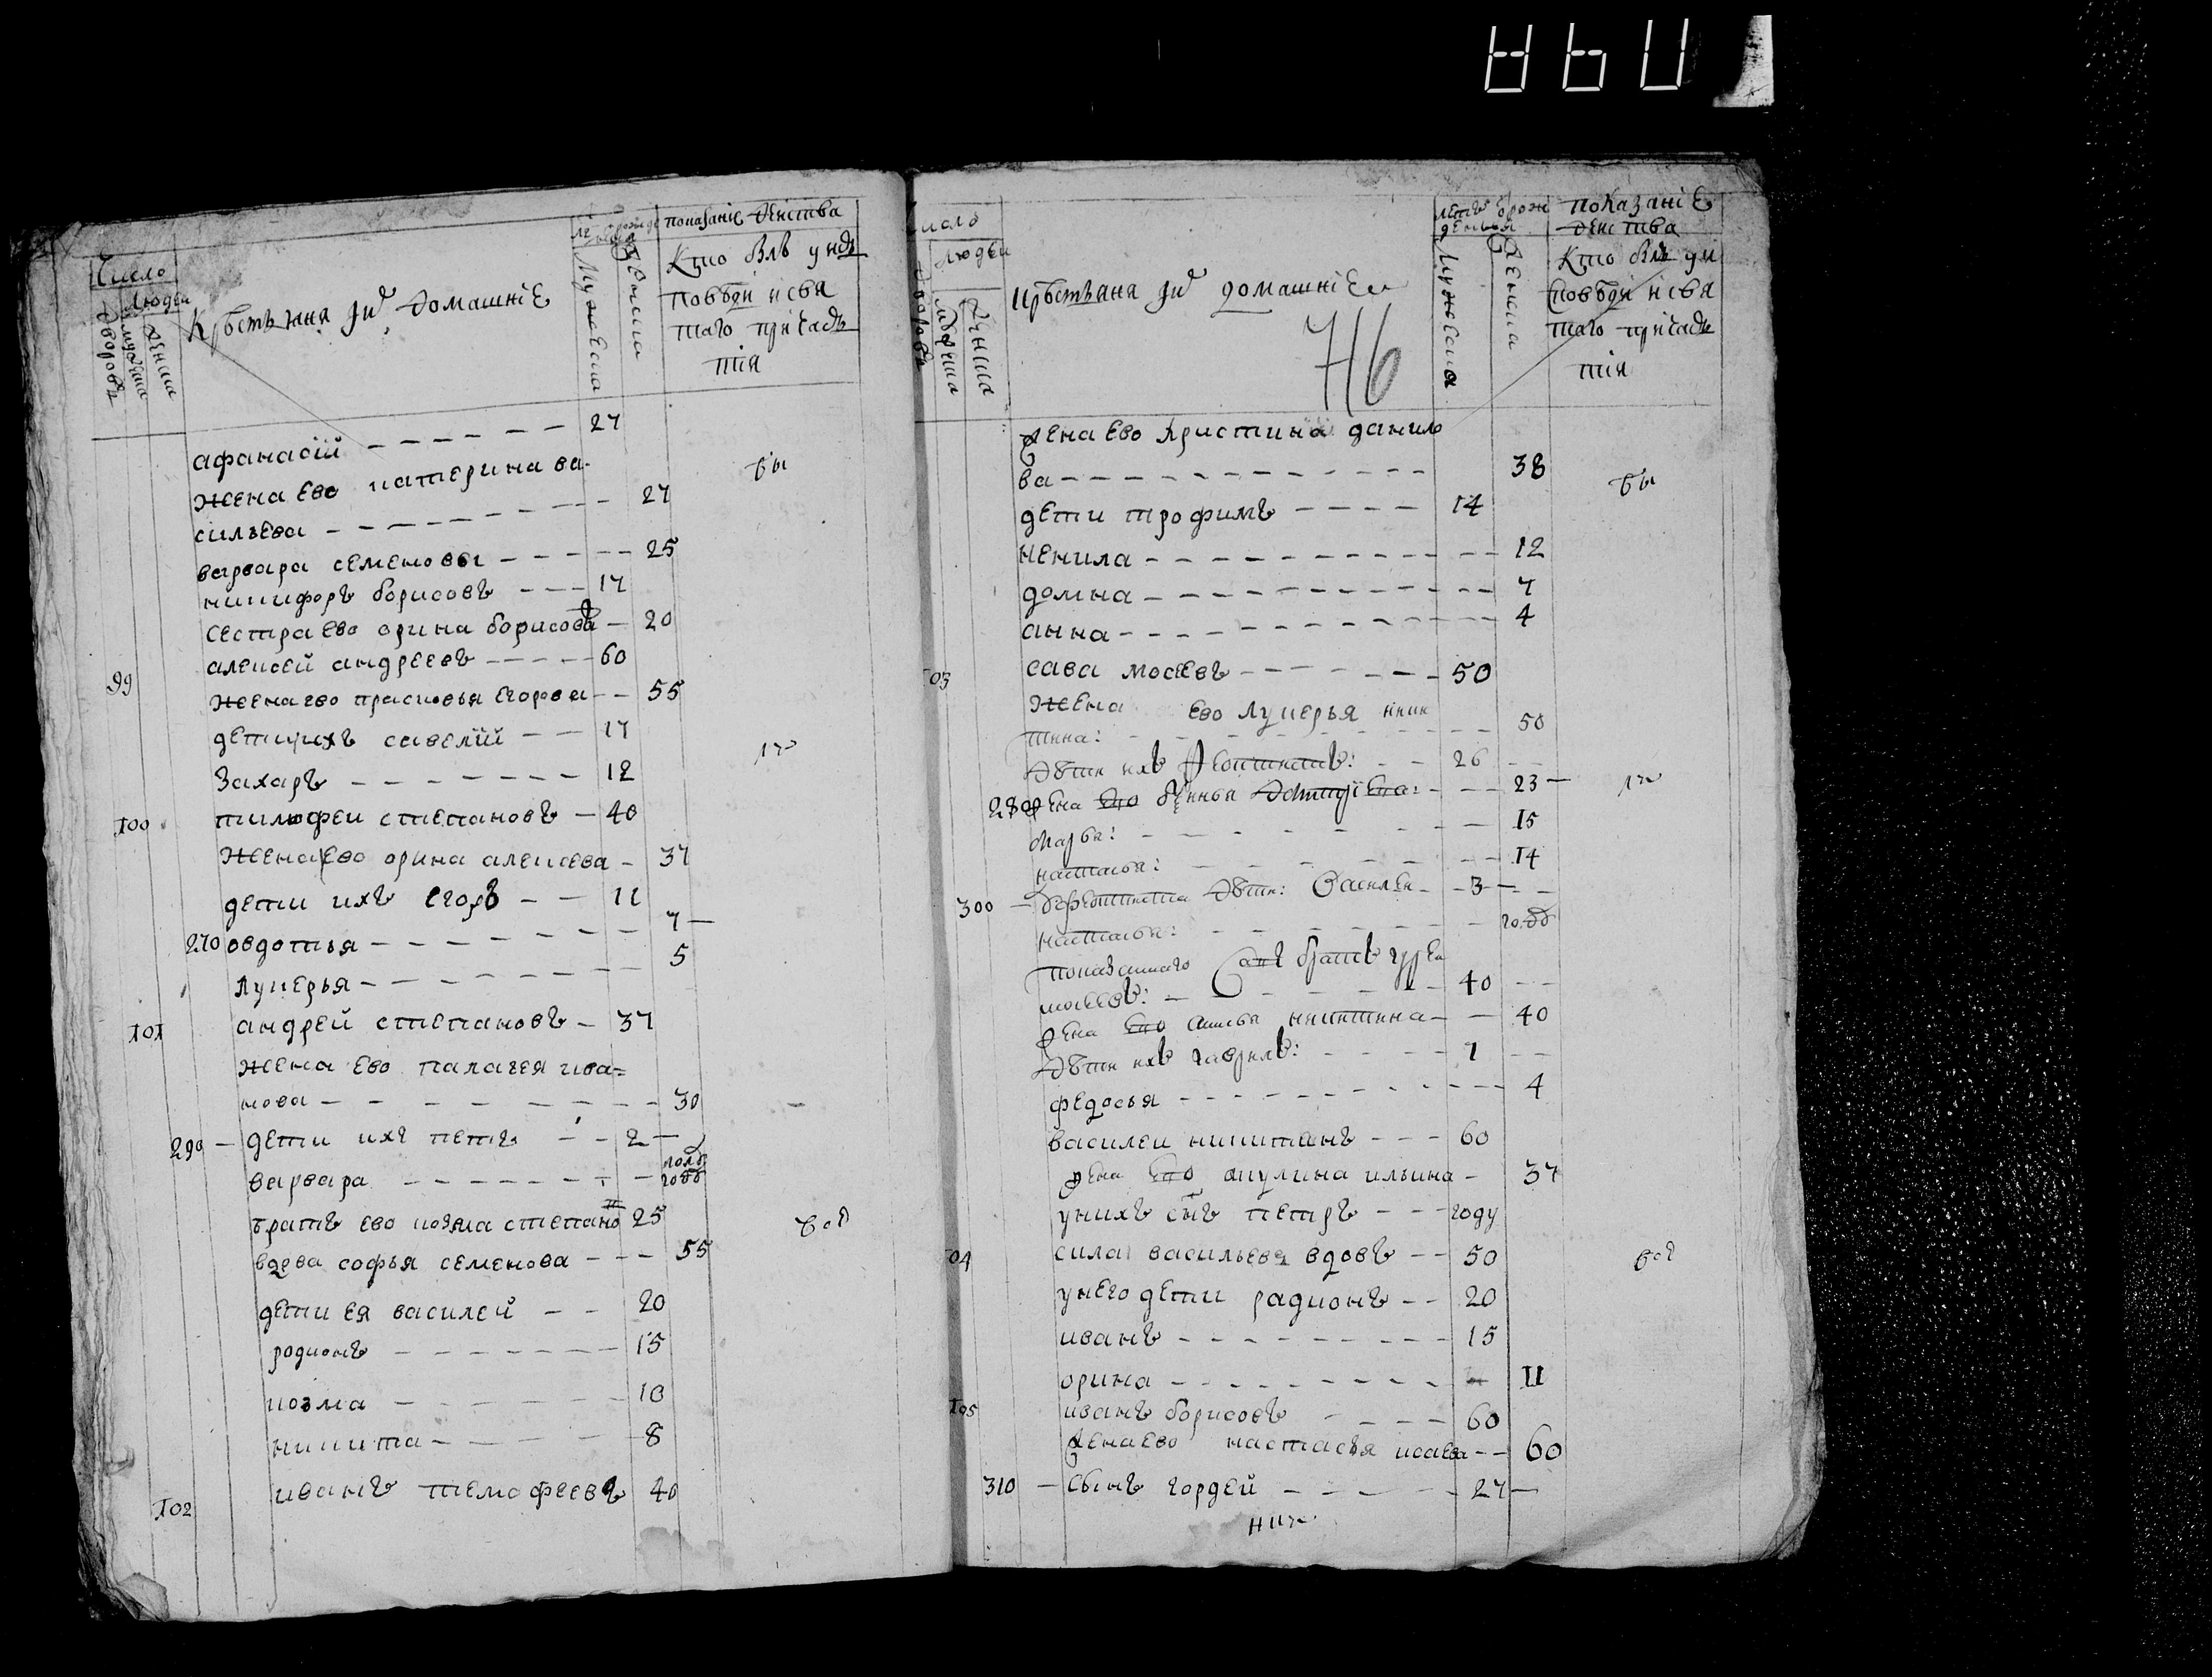 Число
Людеи
дворовъ
мужеска
женска
Крѣстьяня и домашние
мужеска
женска
показание действа
Кто былъ у
таго причас
тия
афанасiй - - - - - - - 27
жена ево катерина ва-
сильева - - - - - - - - - 27
варвара семеновы - - - - - 25
никифоръ борисовъ - - - 17
сестра ево орина борисова - 20
99 алексей андреевъ - - - - - 60
жена ево прасковья егорова - - 55
дети ихъ савелiй - - 17
Захаръ - - - - - - - 12
100 тимофеи степановъ - 40
жена ево орина алексева - 37
дети ихъ егоръ - - 11
270 овдотья - - - - - - - 7 -
лукерья - - - - - - - 5
101 андрей степановъ - 37
жена ево палагея ива=
нова - - - - - - - - - 30
290 - дети ихъ петръ - - 2 -
варвара - - - - - - - - полъ году
братъ ево козма степано 25
вдова софья семенова - - - 55
дети ея василей - - 20
родионъ - - - - - - - 15
козма - - - - - - 10
никита - - - - - - 8
102 иванъ темофеевъ 40
число
людеи
дворовъ
женска
крѣстьяня и домашние
716
мужеска
женска
показание
действа
Кто былъ у
таго причас
тия
жена ево христина данило
ва - - - - - - - - - - - - 38
дети трофимъ - - - - 14
ненила - - - - - - - - - - - - 12
домна - - - - - - - - - - - - 7
анна - - - - - - - - - - - - 4
03 сава мосеевъ - - - - - - - 50
жена ево лукерья ники
тина: - - - - - - - - - 50
Дѣти ихъ - - 26 - -
жена ево - - - 23 -
марья: - - - - - - - - 15
настасья: - - - - - - - - 14
300 - дѣти: Василеи - - 3 - - -
настасья: - - - - - - - годъ
показаннаго савы братъ гуреи
мосеевъ: - - - - - - - 40 - -
жена ево никитина - - 40
Дѣти ихъ гаврилъ: - - - - 7 - -
федосья - - - - - - - - - - - 4
василеи никитинъ - - - 60
жена ево акулина ильина - 37
у нихъ сынъ петръ - - - году
04 сила васильевъ вдовъ - - 50
у него дети радионъ - - 20
иванъ - - - - - - - - - - 15
орина - - - - - - - - - - 11
105 иванъ борисовъ - - - - 60
жена ево настасья исаева - - 60
310 - сынъ гордей - - - - - 27 -